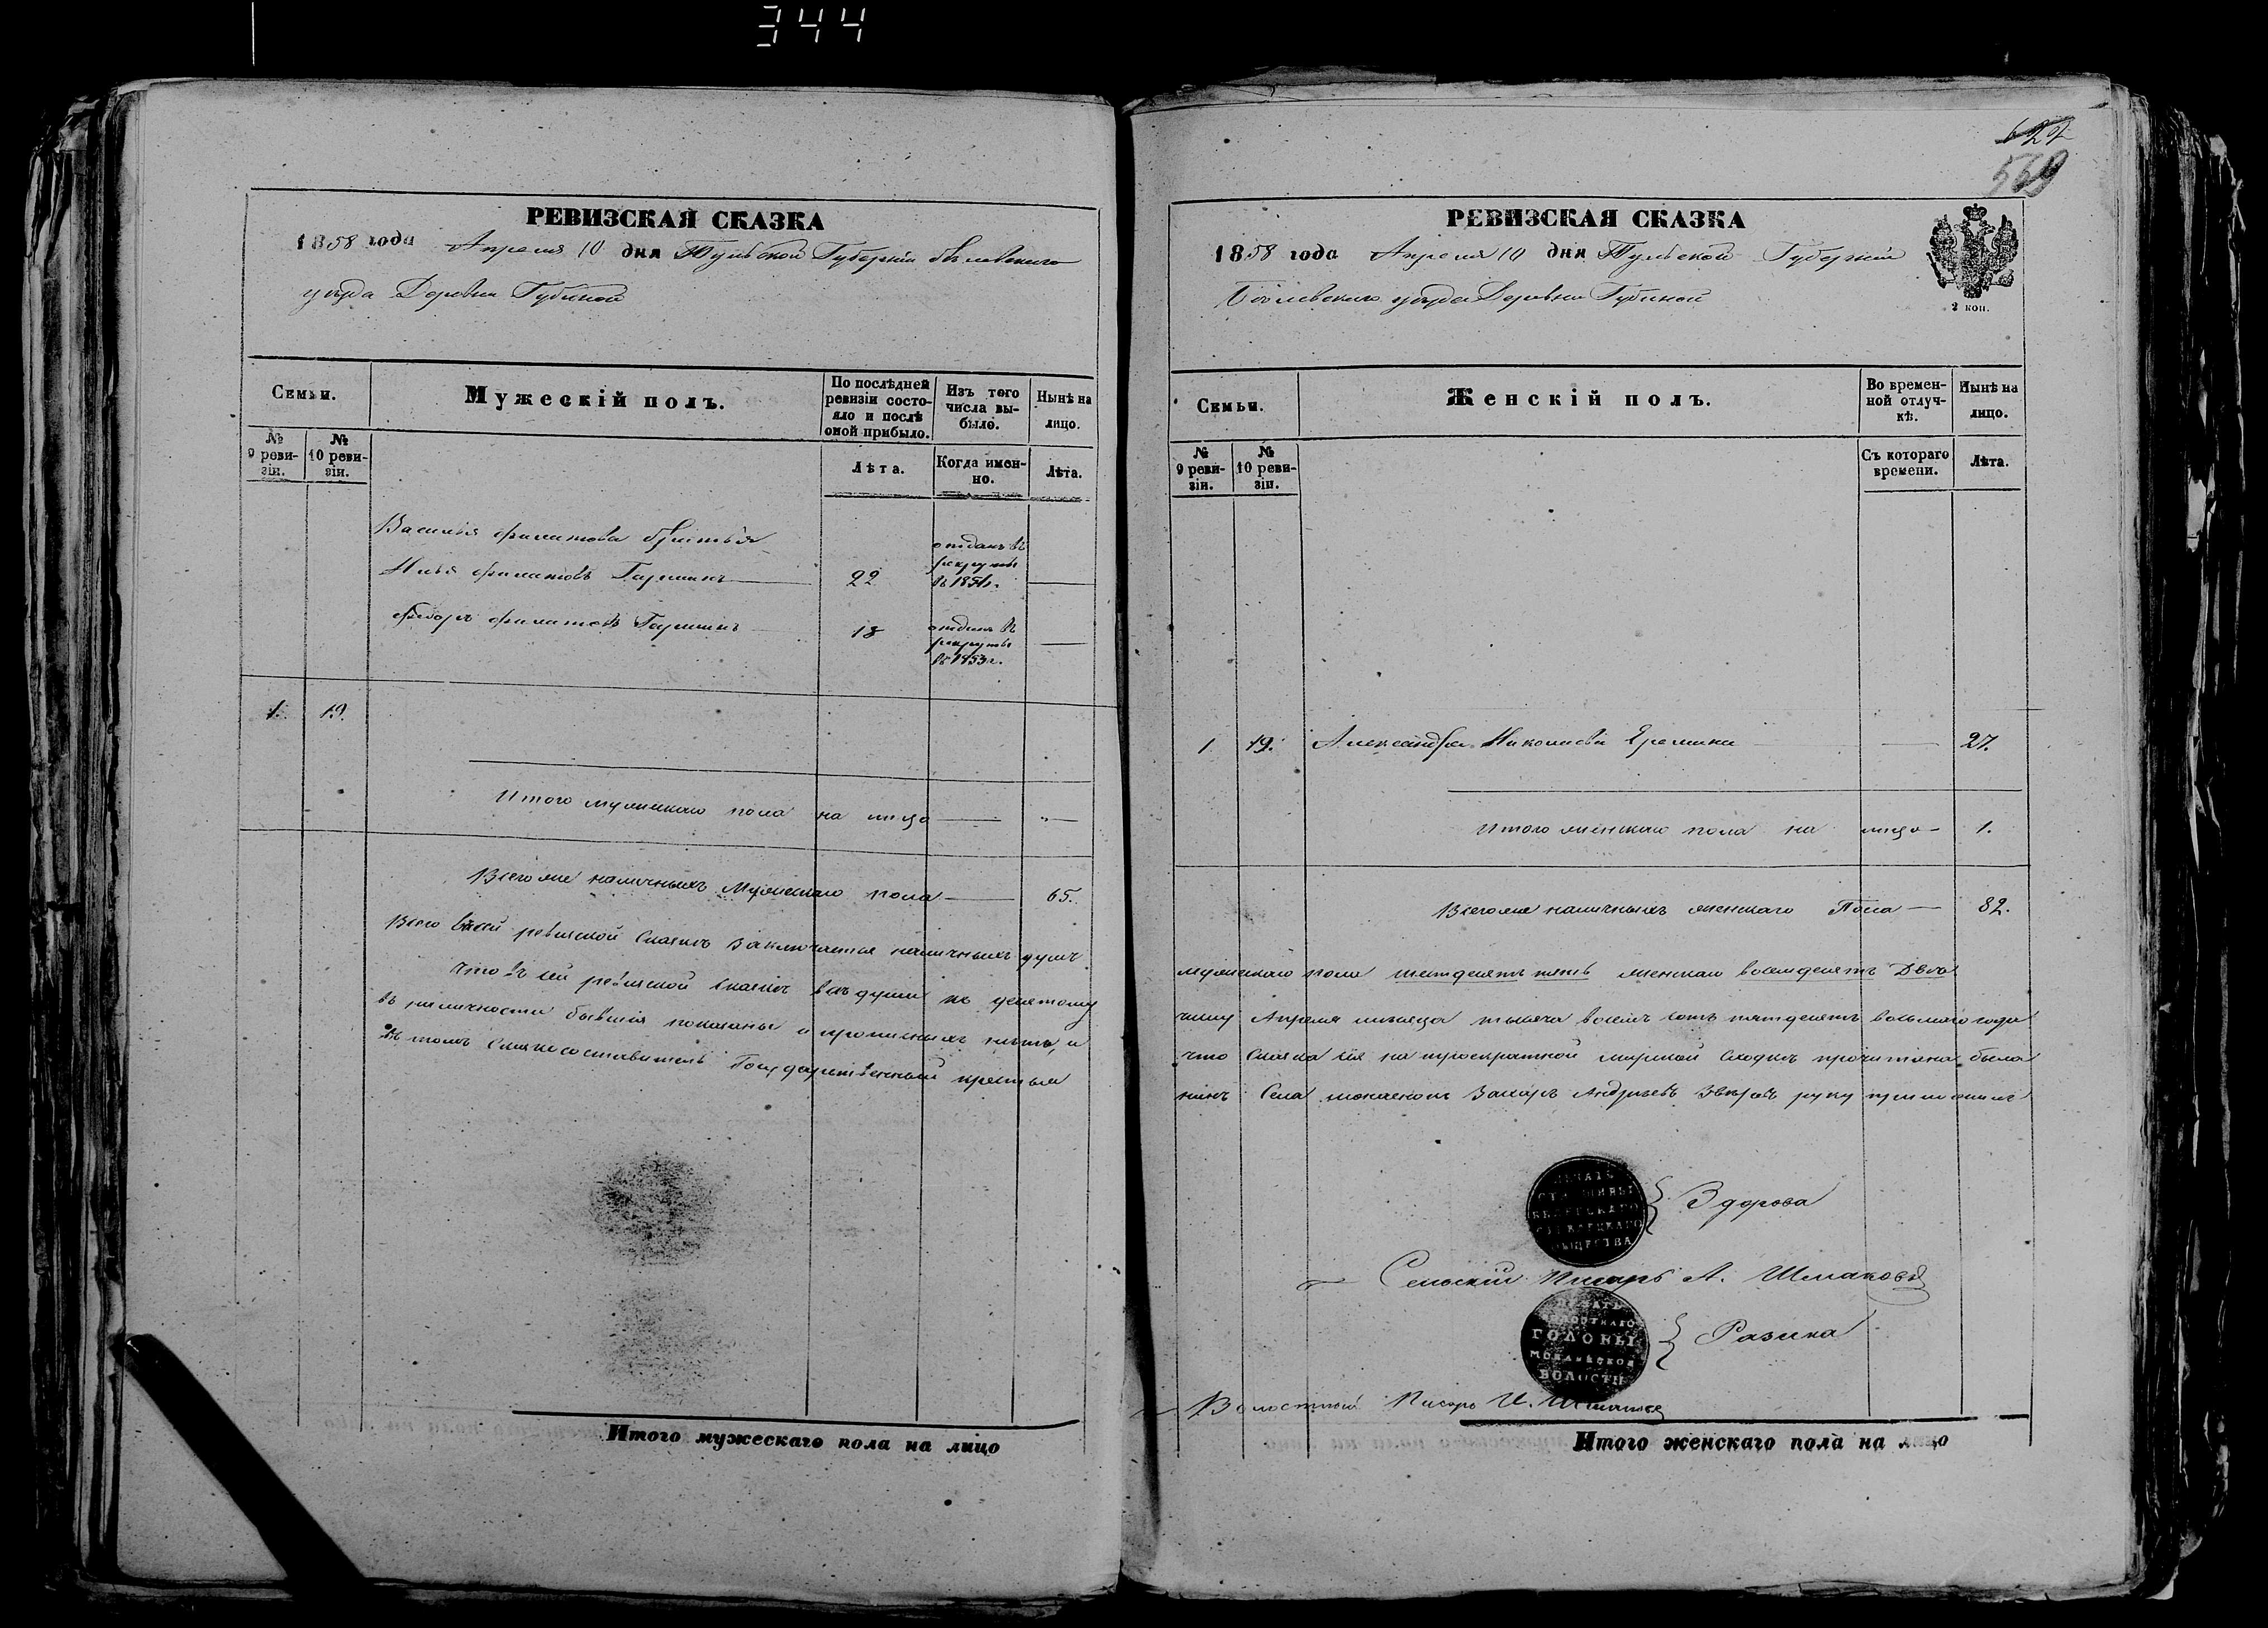 344
РЕВИЗСКАЯ СКАЗКА
1858 года Апреля 10 дня Тульской Губерніи Бѣлевскаго
уѣзда Деревни Губиной
Семьи.
Мужескій полъ.
По послѣдней ревизіи состояло и послѣ оной прибыло.
Изъ того числа выбыло.
Нынѣ на лицо.
№ 9 ревизіи.
№ 10 ревизіи.
Лѣта.
Когда именно.
Лѣта.
Василья Филатова братья
Илья Филатовъ Гаршинъ 22 отданъ въ рекруты въ 1851г.
Федоръ Филатовъ Гаршинъ 18 отданъ въ рекруты въ 1853г.
1. 19.
Итого мужескаго пола на лицо
Всего же наличныхъ Мужескаго пола 65.
Всего въ сей ревизской Сказкѣ заключается наличныхъ душъ
Что въ сей ревизской Сказкѣ всѣ души къ десятому
въ наличности бывшія показаны и прописныхъ нѣтъ, и
въ томъ Сказкосоставитель Государственный крестья
Итого мужескаго пола на лицо
627
569
РЕВИЗСКАЯ СКАЗКА
1858 года Апреля 10 дня Тульской Губерніи
Бѣлевскаго уѣзда Деревни Губиной
3 коп.
Семьи.
Женскій полъ.
Во временной отлучкѣ.
Нынѣ на лицо.
№ 9 ревизіи.
№ 10 ревизіи.
Съ котораго времени.
Лѣта.
1 19. Александра Николаева Еремина 27.
Итого женскаго пола на лицо 1.
Всего же наличныхъ женскаго Пола 82.
мужескаго пола шестдесятъ пять женскаго восемдесятъ Двѣ
числу Апреля мѣсяца тысяча восемь сотъ пятдесятъ восьмаго года
что Сказка сія на троекратной мирской Сходкѣ прочитана была
нинъ Села Захаръ Андреевъ руку приложилъ
ПЕЧАТЬ СТАРШИНЫ ОБЩЕСТВА
Здорова
Сельскій Писарь А. Шмаковъ
ПЕЧАТЬ ВОЛОСТНАГО ГОЛОВЫ ВОЛОСТИ
Разина
Волостной Писарь И.
Итого женскаго пола на лицо